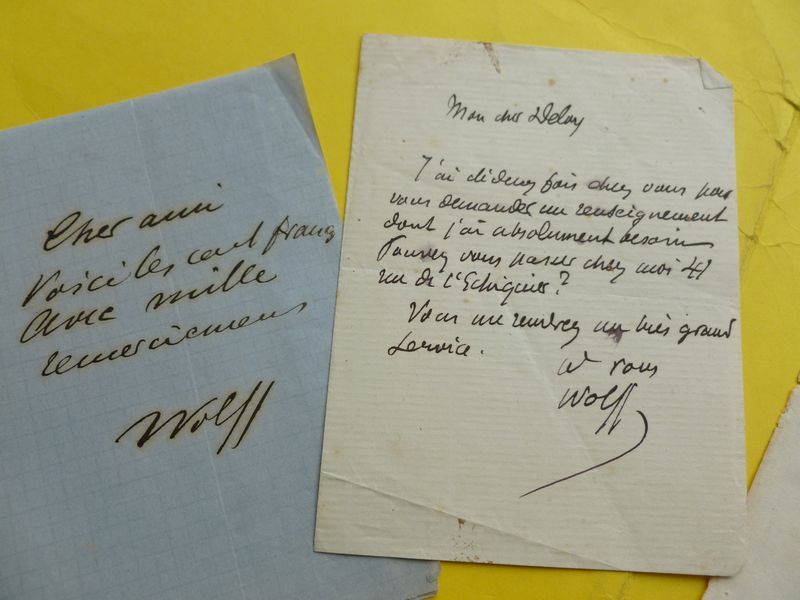 Cher ami
Voici les cent francs
Avec mille
remerciemens
Wolff
Mon cher Delay
J'ai été deux fois chez vous pour
vous demander un renseignement
dont j'ai absolument besoin
Pouvez vous passer chez moi 41
rue de l'Echiquier?
Vous me rendrez un très grand
service.
à vous
Wolff